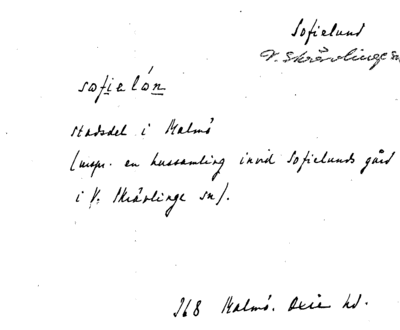 Sofielund
V. Skrävlinge sn
sofielón
stadsdel i Malmö
(urspr. en hussamling invid Sofielunds gård
i V. Skrävlinge sn).
268 Malmö. Oxie hd.